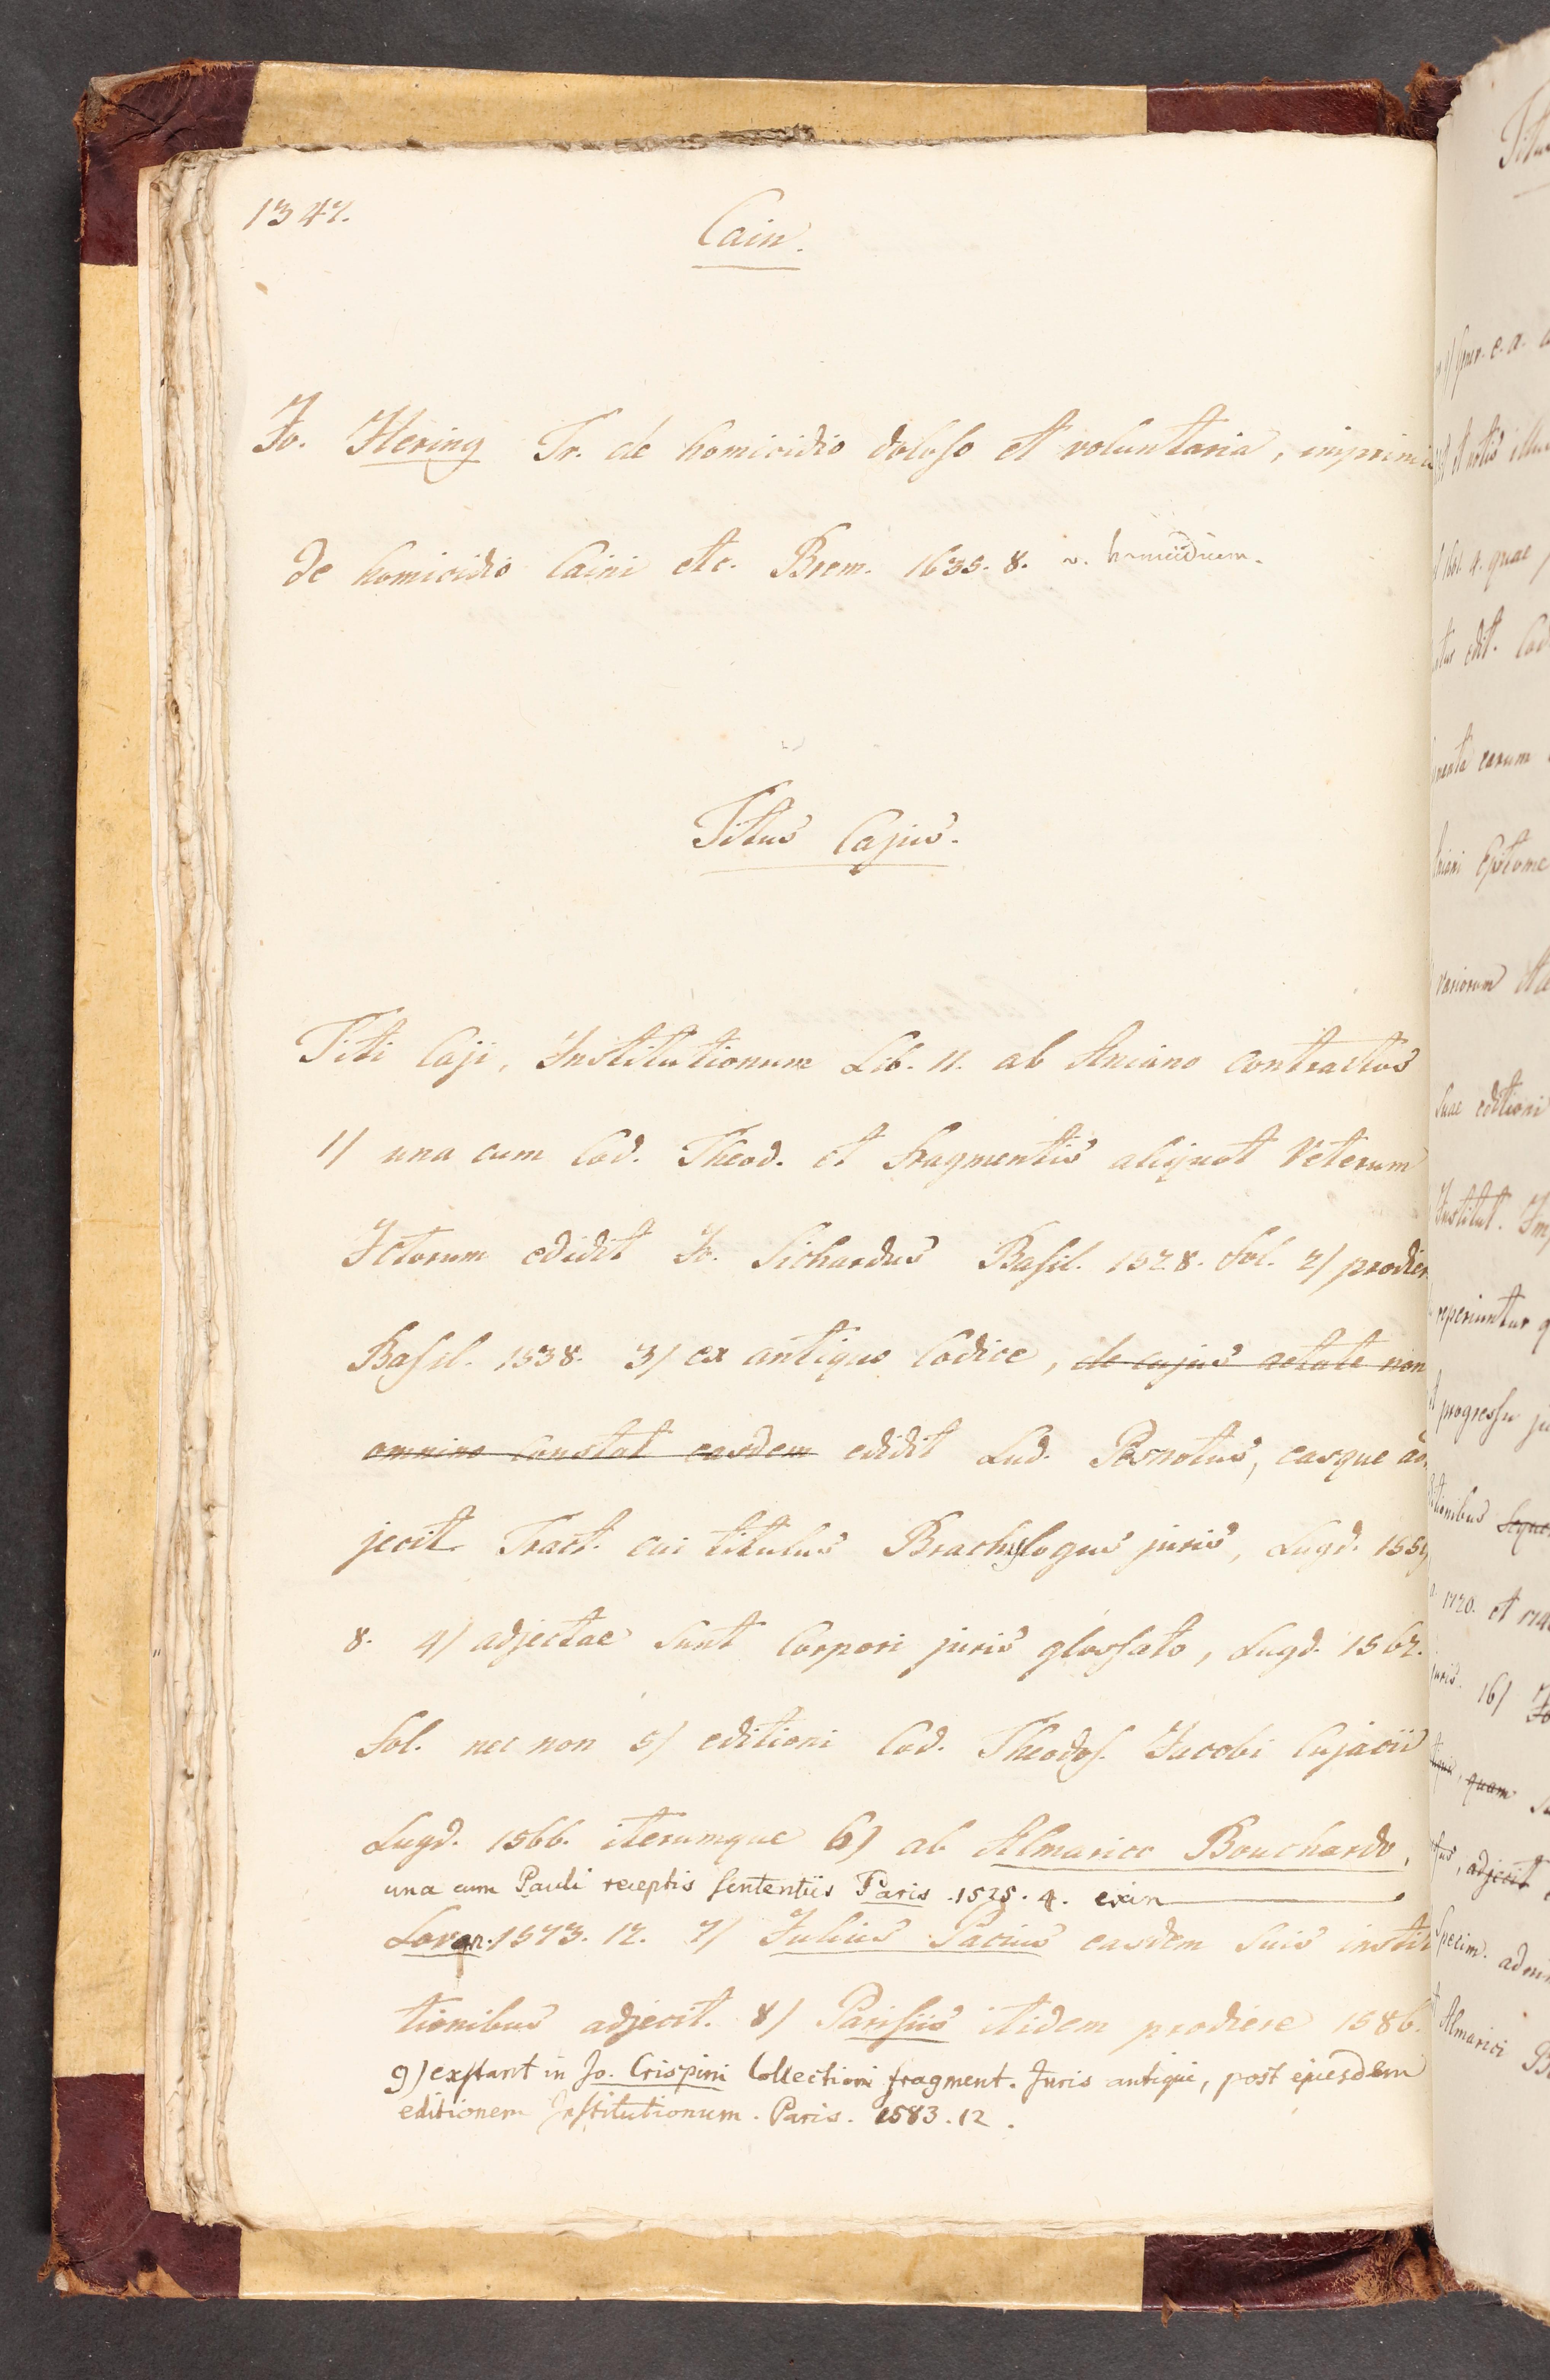 1342.
Cain.
Jo. Hering Tr. de homicidio doloso et voluntaria, imprimis
de homicidio Caini etc. Brem. 1635. 8. v. homicidium.
Titus Cajus.
Titi Caji, Institutionum Lib. II. ab Aniano contractos
1) una cum Cod. Theod. et fragmentis aliquot Veterum
Ictorum edidit Jo. Sichardus Basil. 1528. fol. 2) prodier
Basil. 1538. 3) ex antiquo Codice, de cujus aetate non
omnino constat easdem edidit Lud. Pesnotus, easque ad
jecit Tract. cui titulus Brachylogus juris, Lugd. 155
8. 4) adjectae sunt Corpori juris glossato, Lugd. 1562.
fol. nec non 5) editioni Cod. Theodos. Jacobi Cujacii
Lugd. 1566. iterumque 6) ab Almarico Bouchardo,
una cum Pauli receptis sententiis Paris. 1525. 4. exin
1573. 12. 7) Julius Pacius easdem suis institu
tionibus adjecit. 8) Parisiis itidem prodiere 1586.
9) exstant in Jo. Crispini Collectioni fragment. Juris antiqui, post ejusdem
editionem Institutionum. Paris. 1583. 12.
Titu
et notis illu
1661. 4. quae
edit. Cod
earum
Epitome
variorum
suae editioni
Institut. Imp
reperiuntur q
progressu ju
1720. et
juris. 16) Jo
quam
adjecit
Specim. admin
Almarici B